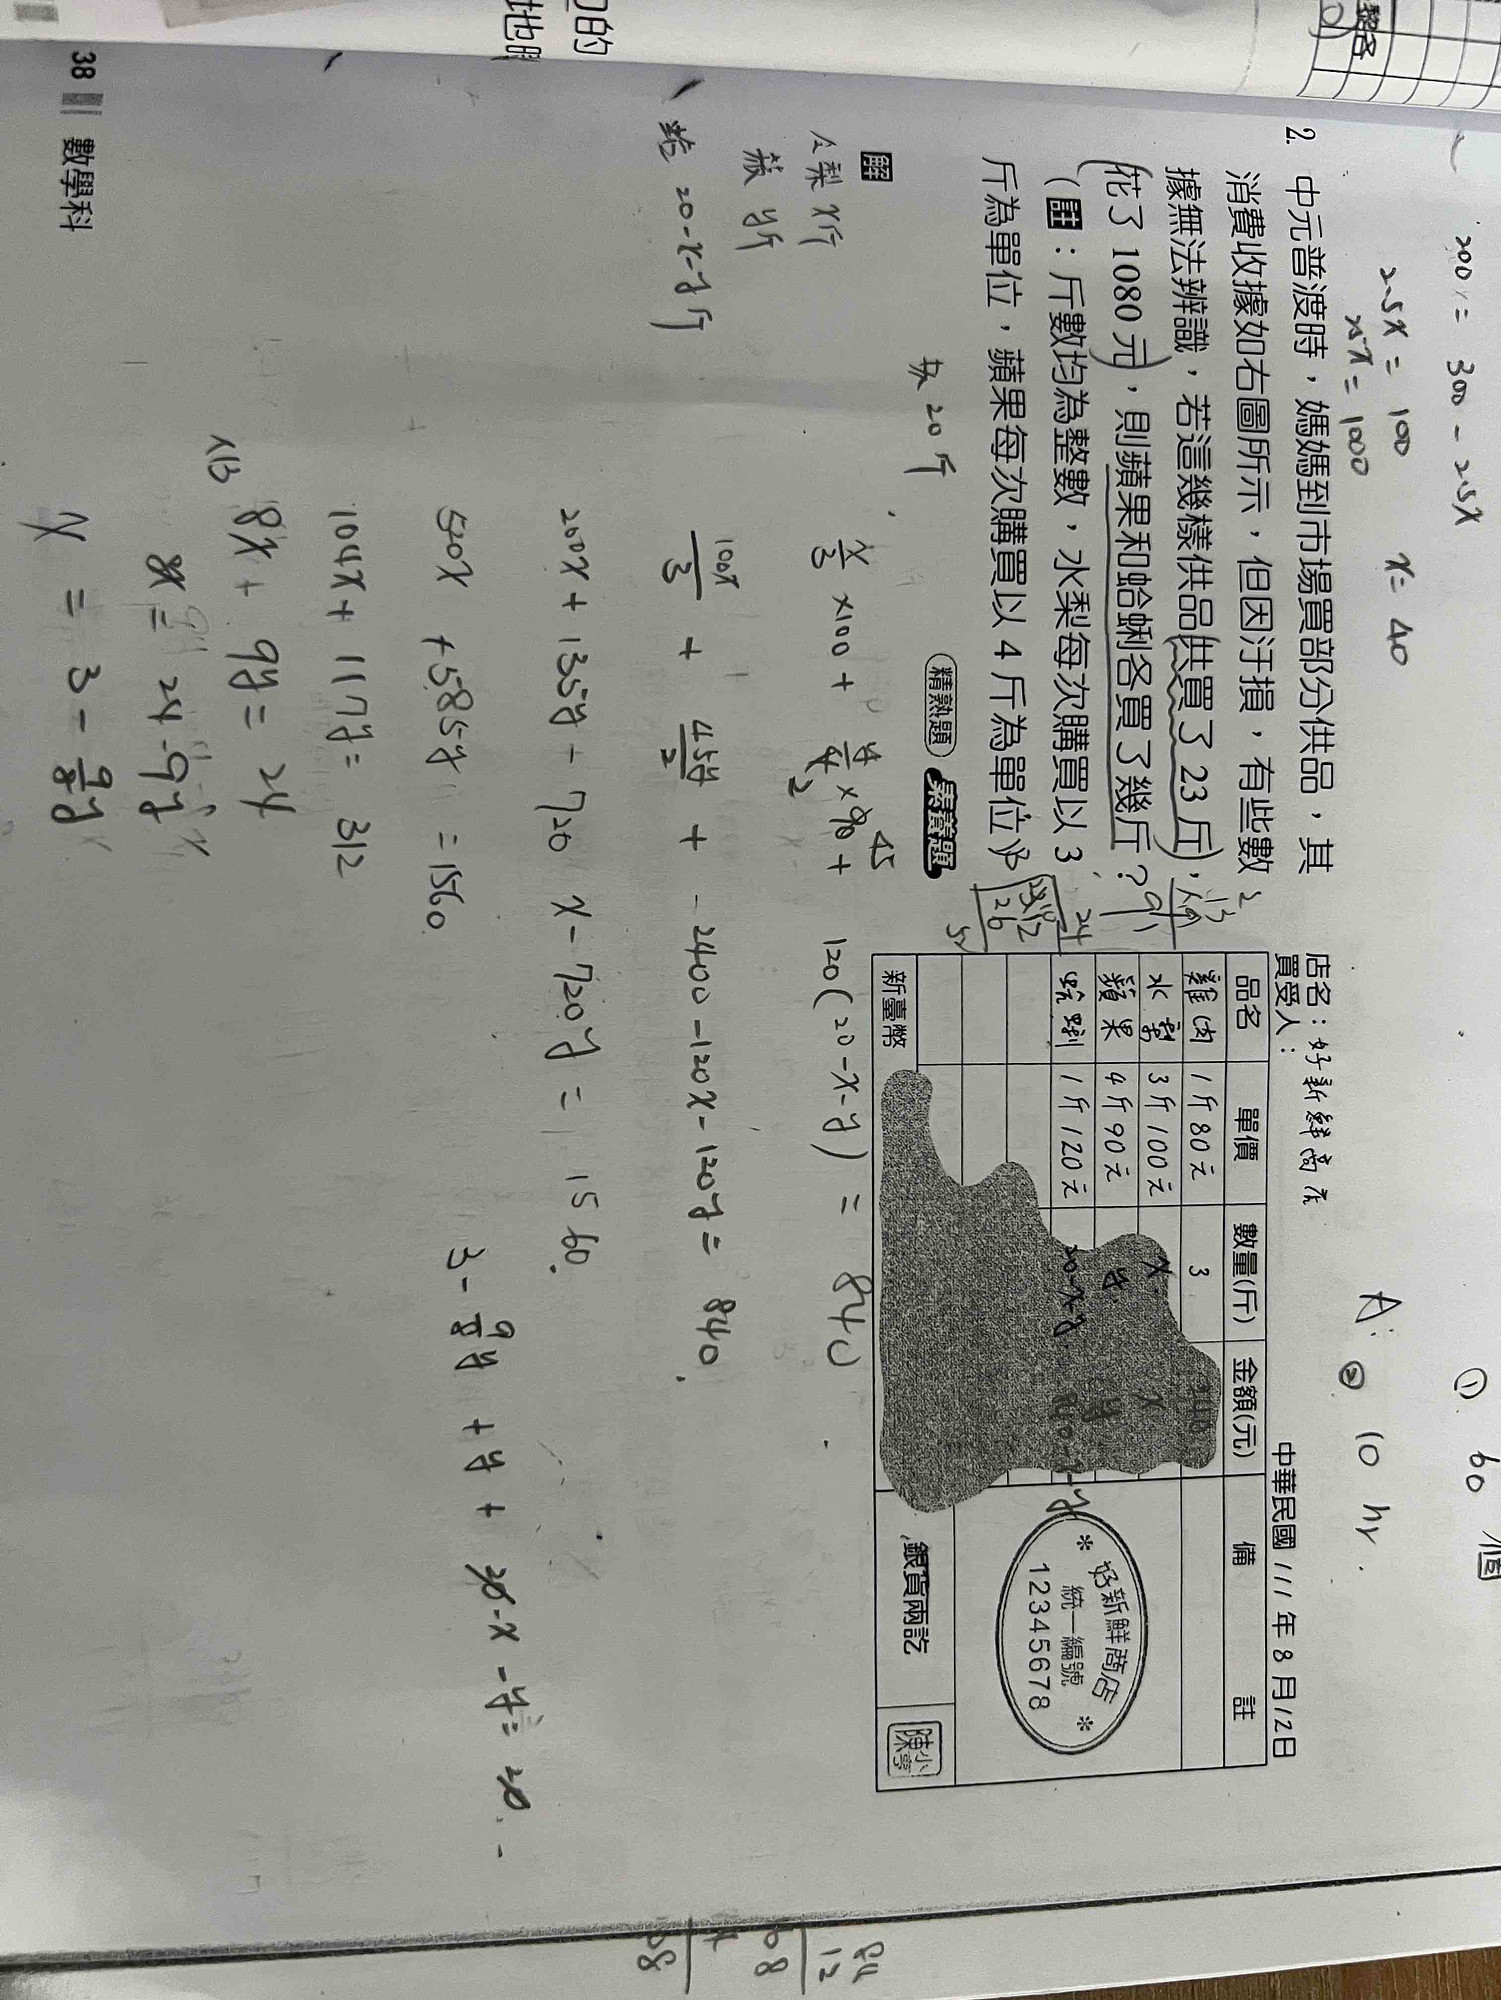 200x = 300 - 25x
25x = 100
x = 40
25x = 1000
① 60 個
A: ② 10 hr.
2. 中元普渡時，媽媽到市場買部分供品，其
消費收據如右圖所示，但因汙損，有些數
據無法辨識，若這幾樣供品共買了 23 斤，
花了 1080 元，則蘋果和蛤蜊各買了幾斤？
(註：斤數均為整數，水梨每次購買以 3
斤為單位，蘋果每次購買以 4 斤為單位)
精熟題
中華民國 111 年 8 月 12 日
店名：好新鮮商店
買受人：
品名 單價 數量(斤) 金額(元) 備註
雞肉 1斤80元 3 240
水梨 3斤100元 x x
蘋果 4斤90元 y y
蛤蜊 1斤120元 20-x-y 840-x-y
新臺幣
銀貨兩訖
好新鮮商店
* 統一編號 *
12345678
解
共 20 斤
梨 x斤
蘋 y斤
蛤 20-x-y斤
x/3 ×100 + y/4 ×90 + 120(20-x-y) = 840
45
2
100x/3 + 45y/2 + 2400 - 120x - 120y = 840
200x + 135y - 720x - 720y = 1560
520x + 585y = 1560
104x + 117y = 312
8x + 9y = 24
8x = 24 - 9y
x = 3 - 9/8 y
3 - 9/8 y + y + 20 - x - y = 20
38 數學科